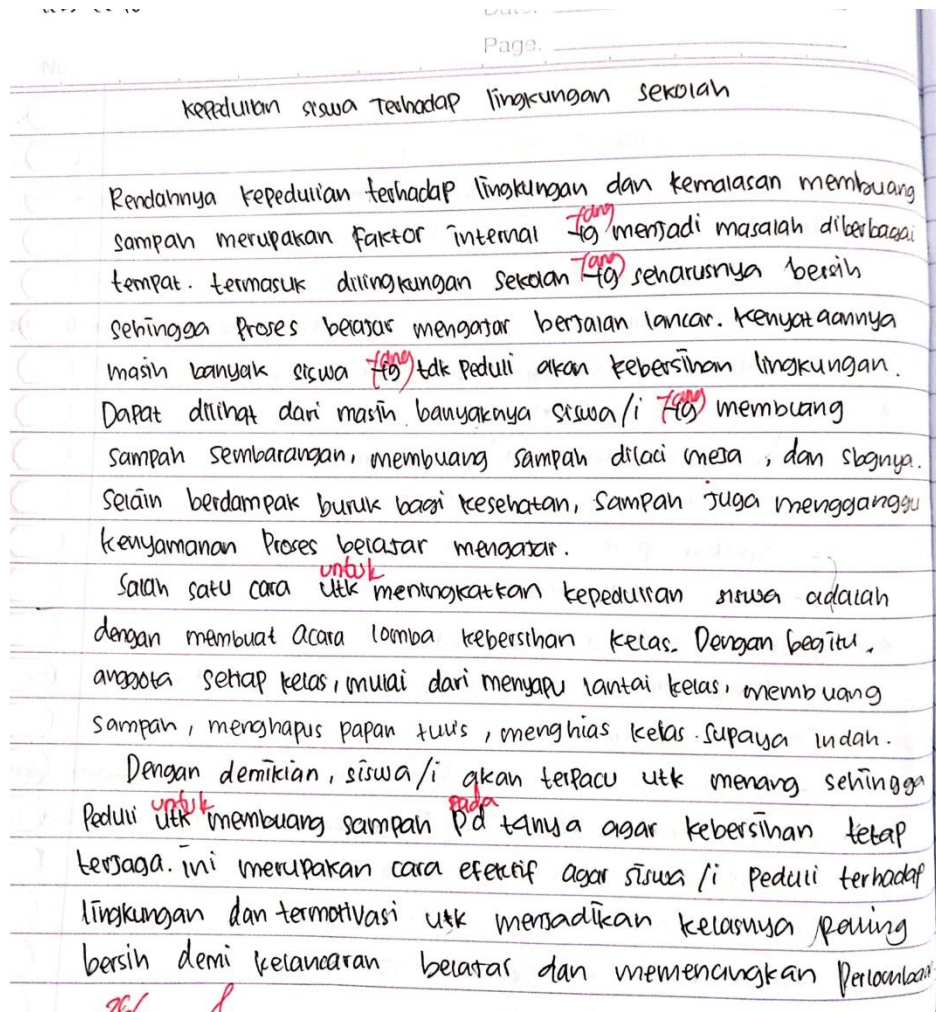 Page.
kepedulian siswa Terhadap lingkungan sekolah
Rendahnya kepedulian terhadap lingkungan dan kemalasan membuang
sampah merupakan faktor internal yg yang menjadi masalah diberbagai
tempat. termasuk dilingkungan sekolah yg yang seharusnya bersih
sehingga Proses belajar mengajar berjalan lancar. kenyataannya
masih banyak siswa yg yang tdk peduli akan kebersihan lingkungan.
Dapat dilihat dari masih banyaknya siswa/i yg yang membuang
sampah sembarangan, membuang sampah dilaci meja, dan sbgnya.
Selain berdampak buruk bagi kesehatan, sampah juga mengganggu
kenyamanan Proses belajar mengajar.
Salah satu cara utk untuk meningkatkan kepedulian siswa adalah
dengan membuat acara lomba kebersihan kelas. Dengan begitu,
anggota setiap kelas, mulai dari menyapu lantai kelas, membuang
sampah, menghapus papan tulis, menghias kelas. supaya indah.
Dengan demikian, siswa/i akan terpacu utk menang sehingga
Peduli utk untuk membuang sampah Pd pada tmnya agar kebersihan tetap
terjaga. ini merupakan cara efektif agar siswa/i Peduli terhadap
lingkungan dan termotivasi utk menjadikan kelasnya paling
bersih demi kelancaran belajar dan memenangkan Perlombaan